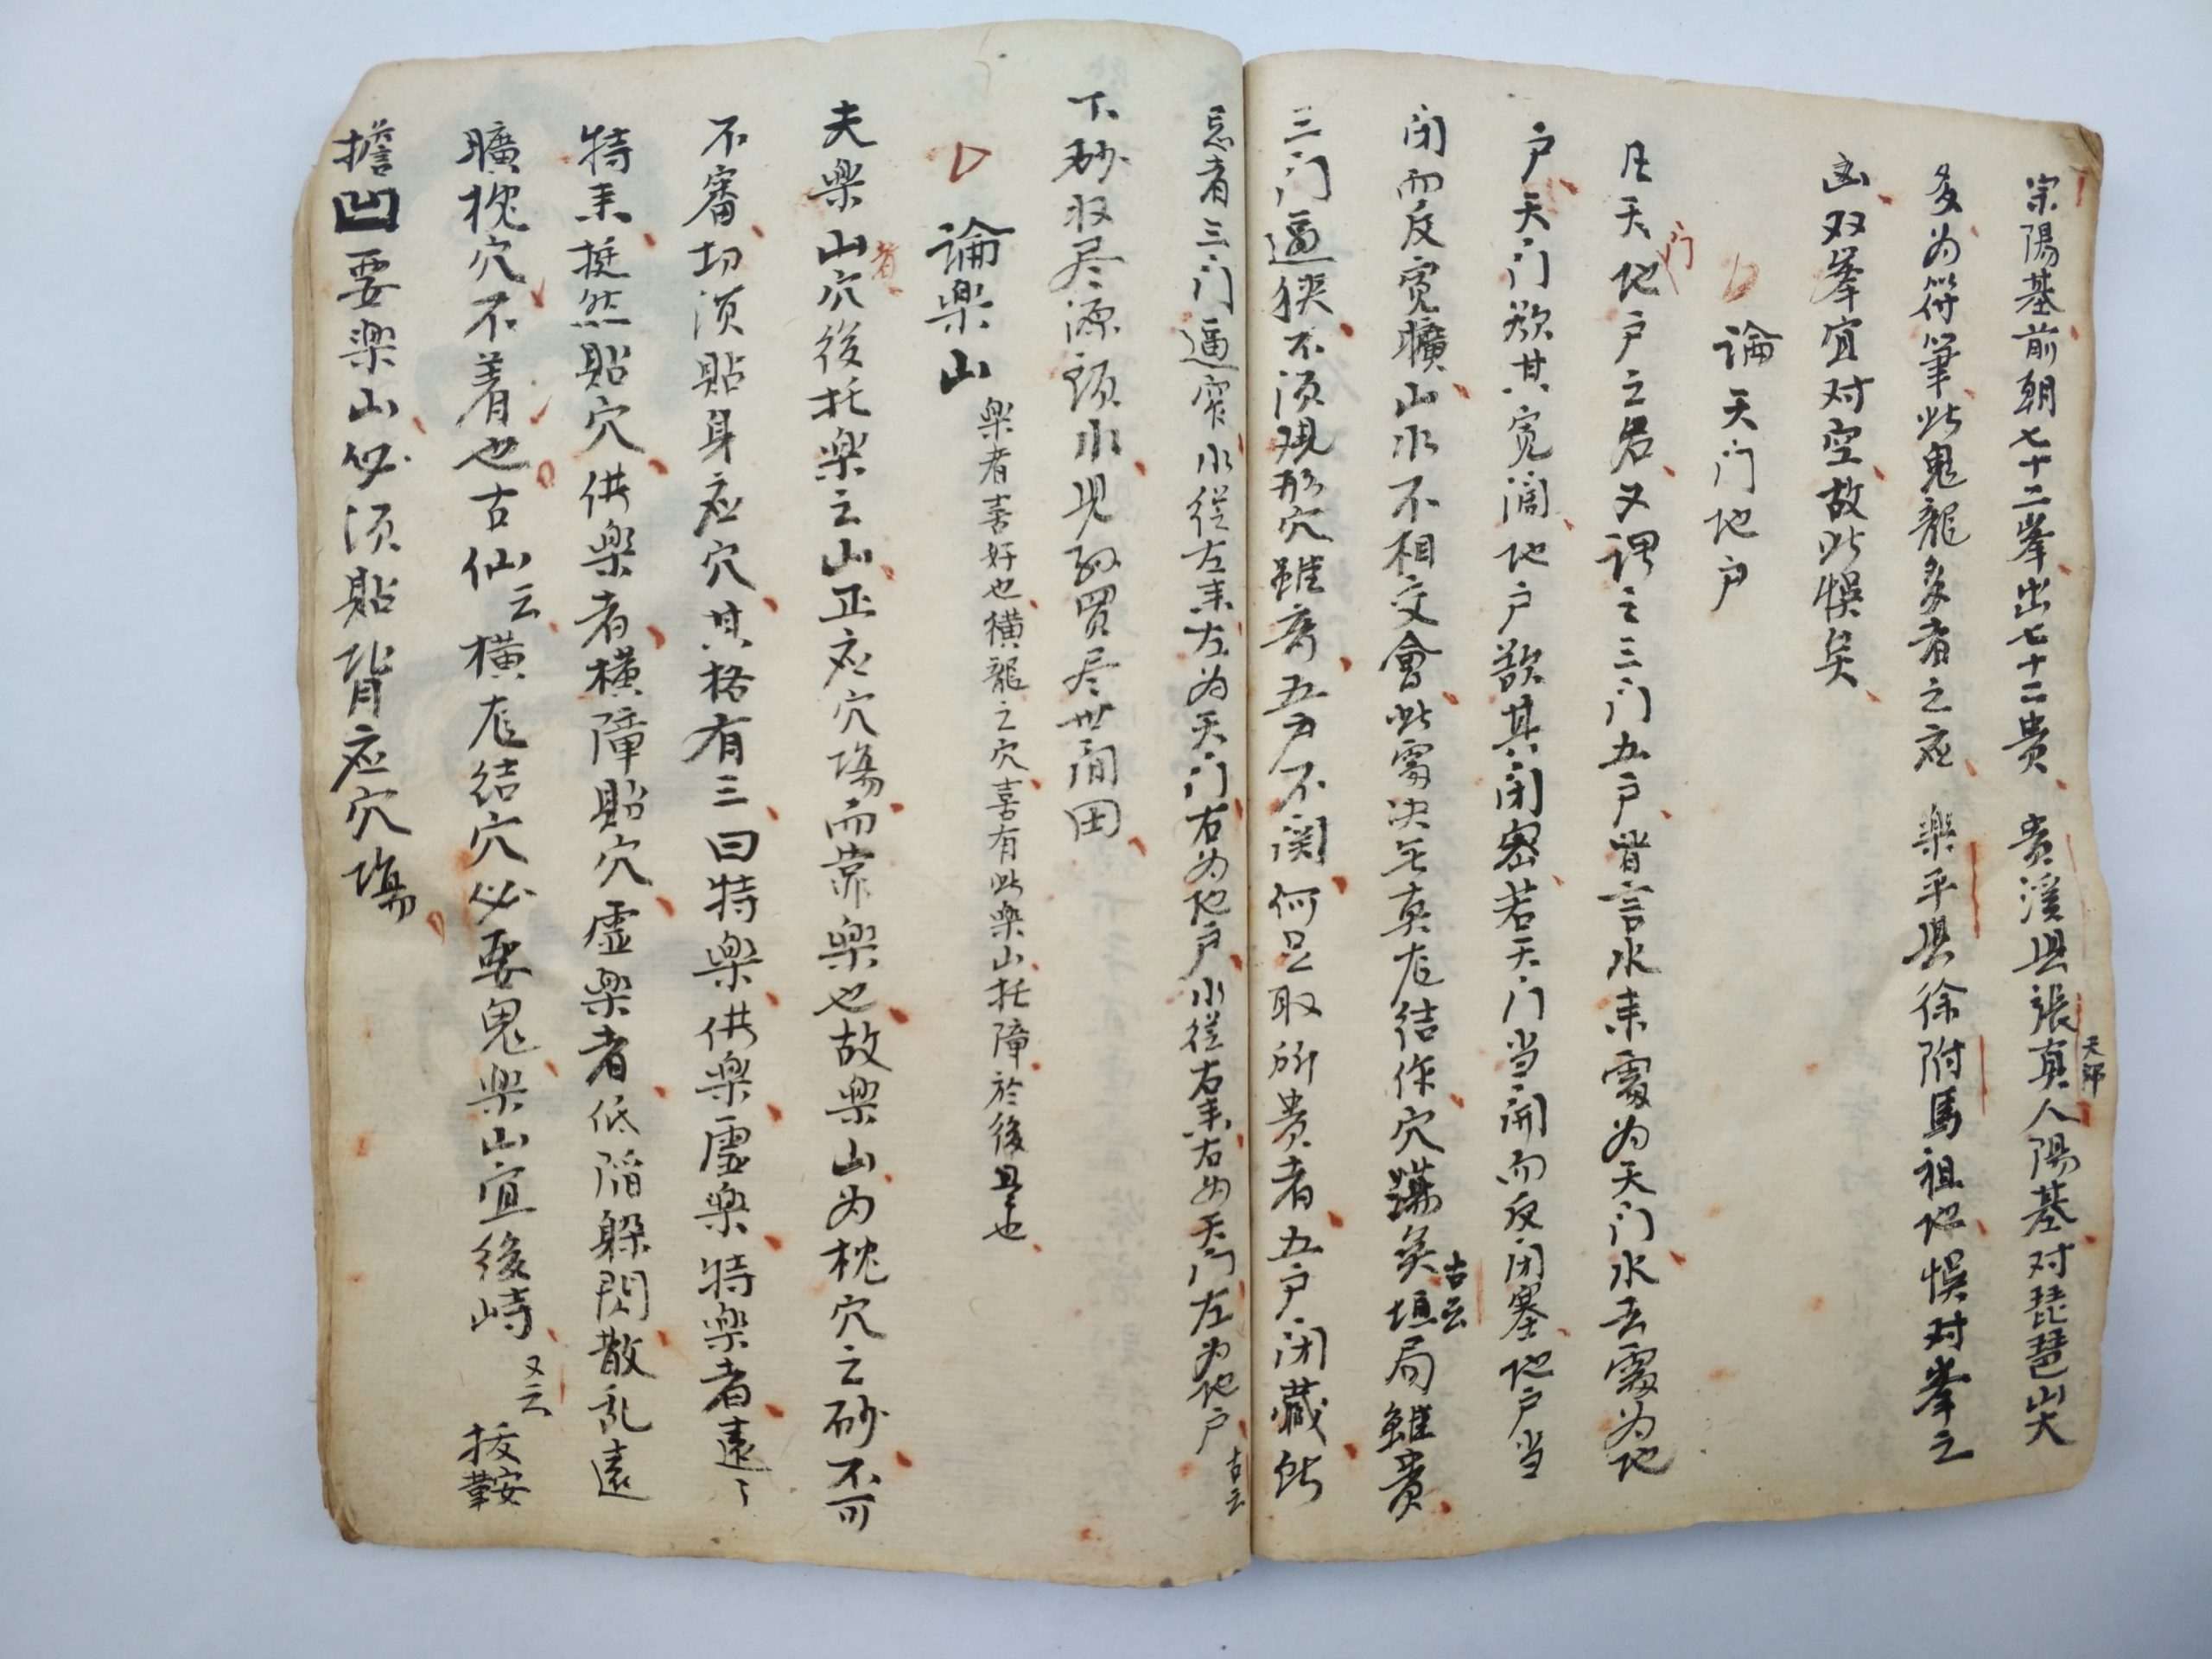 宗陽基前朝七十二峯出七十二貴 貴溪县張真人陽基对琵琶山大
天师
多为符筆此鬼龍多者之应 樂平县徐附馬祖地悞对峯之
凶双峯宜对空故此悞矣
論天门地户
凡天门地户之名又谓之三门五户皆言水来處为天门水去處为地
户天门欲其宽阔地户欲其闭密若天门当開而反闭塞地户当
闭而反宽曠山水不相交會此處决无真龙结作穴 矣古云垣局雖貴
三门逼狭不须观形穴雖奇五户不関何足取所貴者五户闭藏所
忌者三门逼窄水従左来左为天门右为地户水従右来右为天门左为地户古云
下砂收尽源頭水児孙買尽世间田
論樂山 樂者喜好也横龍之穴喜有此樂山托障於後是也
夫樂山者穴後托樂之山正应穴塲而靠樂也故樂山为枕穴之砂不可
不審切须貼身应穴其格有三曰特樂供樂虚樂特樂者遠々
特来挺然貼穴供樂者横障貼穴虚樂者低陷躲閃散乱遠
曠枕穴不着也古仙云横龙结穴必要鬼樂山宜後峙又云扳鞍
擔凹要樂山必须貼背应穴塲